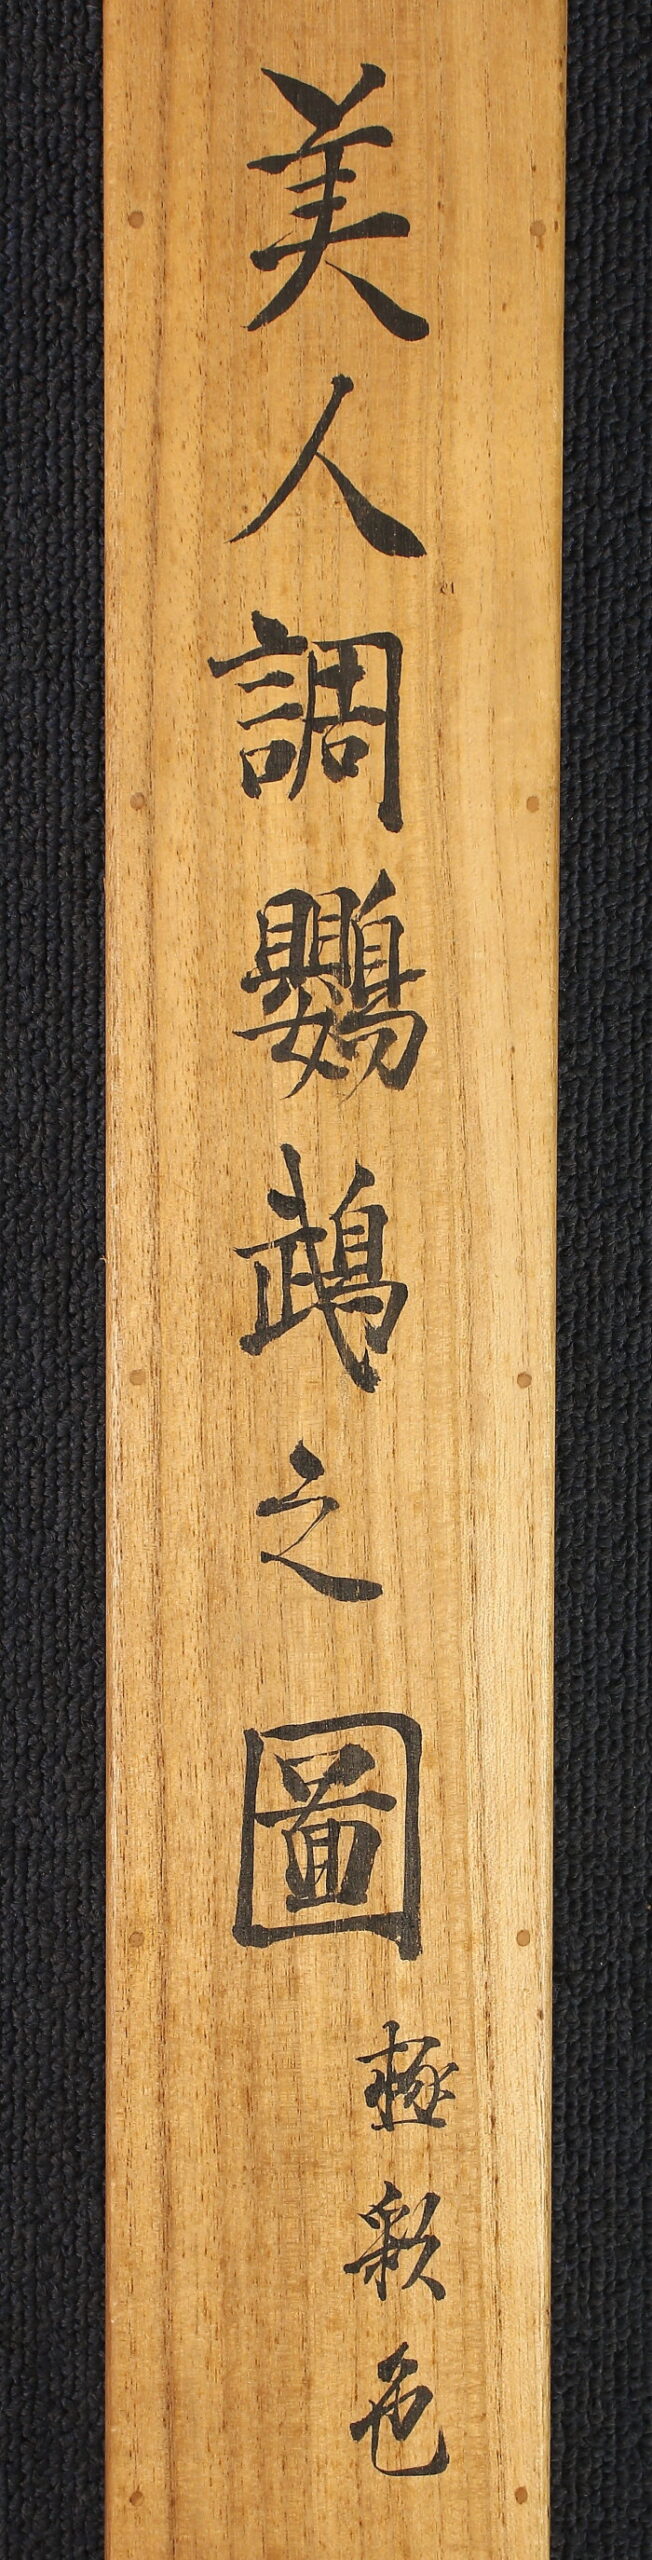 美人調鸚鵡之圖
極彩色